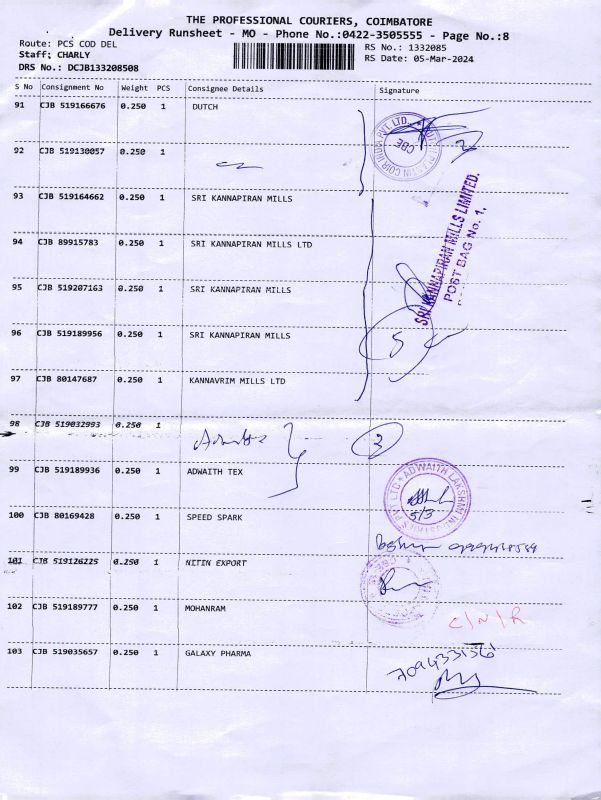 THE PROFESSIONAL COURIERS, COIMBATORE
Delivery Runsheet - MO - Phone No.:0422-3505555 - Page No.:8
Route: PCS COD DEL
RS No.: 1332085
Staff: CHARLY
RS Date: 05-Mar-2024
DRS No.: DCJB133208508
S No Consignment No Weight PCS Consignee Details Signature
91 CJB 519166676 0.250 1 DUTCH
92 CJB 519130057 0.250 1
93 CJB 519164662 0.250 1 SRI KANNAPIRAN MILLS
94 CJB 89915783 0.250 1 SRI KANNAPIRAN MILLS LTD
95 CJB 519207163 0.250 1 SRI KANNAPIRAN MILLS
96 CJB 519189956 0.250 1 SRI KANNAPIRAN MILLS
97 CJB 80147687 0.250 1 KANNAVRIM MILLS LTD
98 CJB 519032993 0.250 1
99 CJB 519189936 0.250 1 ADWAITH TEX
100 CJB 80169428 0.250 1 SPEED SPARK
101 CJB 519126225 0.250 1 NITIN EXPORT
102 CJB 519189777 0.250 1 MOHANRAM
103 CJB 519035657 0.250 1 GALAXY PHARMA
CBE
2
SRI KANNAPIRAN MILLS LIMITED.
POST BAG No. 1,
5
3
ADWAITH LAKSHMI INDUSTRIES PVT LTD
5/3
C/N/R